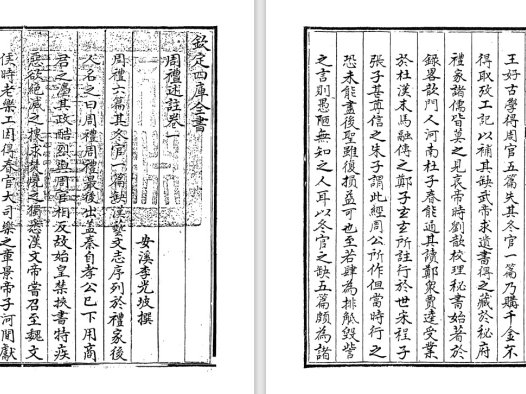 欽定四庫全書
周禮述註卷一
安溪李光坡撰
周禮六篇其冬官一篇缺漢藝文志序列於禮家後
人名之曰周禮周禮最後出蓋秦自孝公已下用商
君之灋其政酷烈與周官相反故始皇禁挾書特疾
惡欲絶滅之搜求焚燒之獨悉漢文帝嘗召至魏文
侯時老樂工因得春官大司樂之章景帝子河間獻
王好古學得周官五篇失其冬官一篇乃購千金不
得取攷工記以補其缺武帝求遺書得之藏於秘府
禮家諸儒皆莫之見哀帝時劉歆校理秘書始著於
録畧歆門人河南杜子春能通其讀鄭衆賈逵受業
於杜漢末馬融傳之鄭子玄玄所註行於世宋程子
張子甚尊信之朱子謂此經周公所作但當時行之
恐未能盡後聖雖復損益可也至若肆為排觝毁訾
之言則愚陋無知之人耳以冬官之缺五篇頗為諸